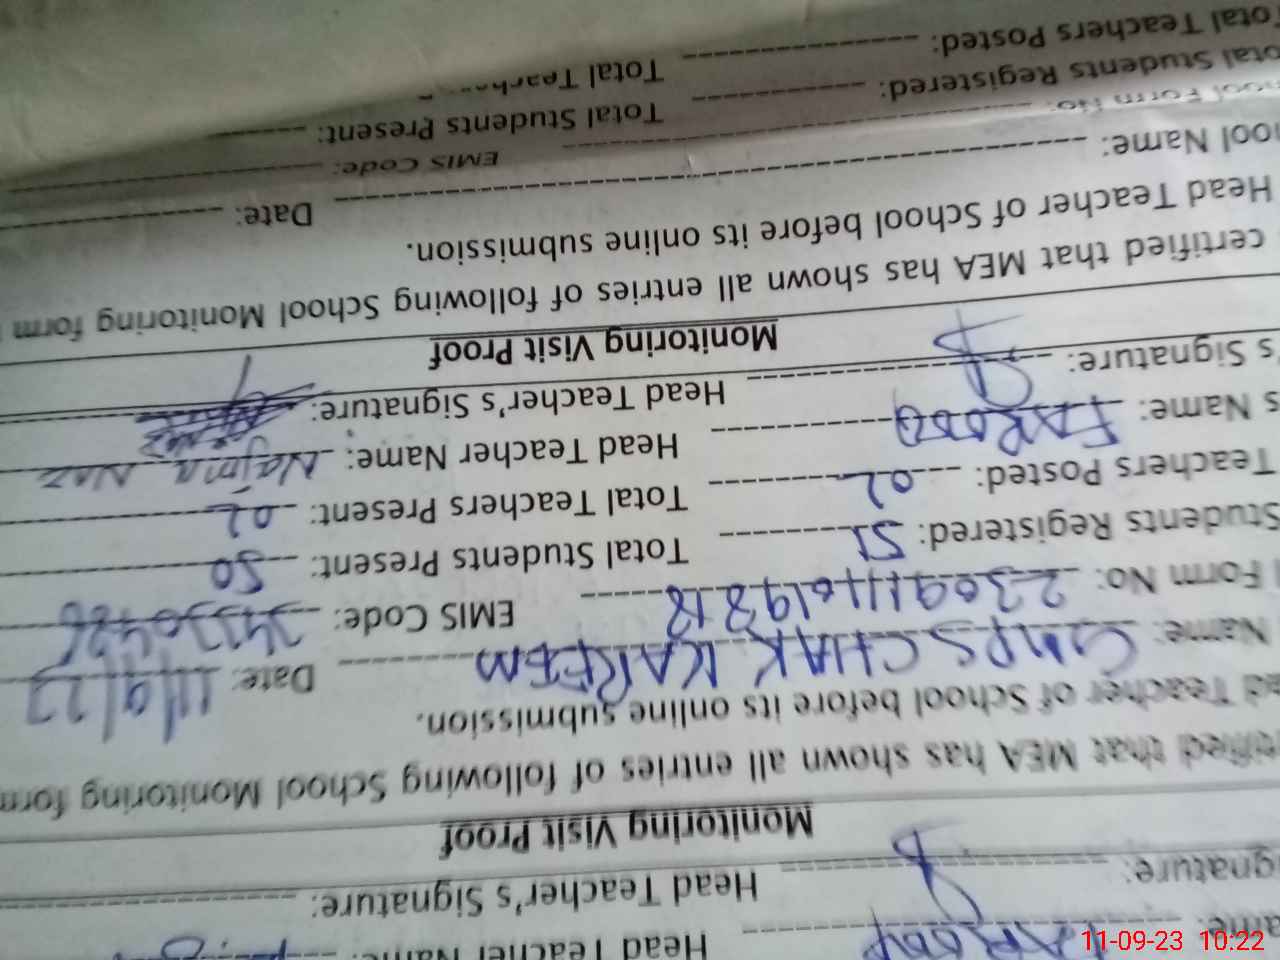 ame: FAROOQ Head Teacher Name:
gnature: Head Teacher's Signature:
Monitoring Visit Proof
tified that MEA has shown all entries of following School Monitoring form
ad Teacher of School before its online submission.
Name: GMPS CHAK KAREEM Date: 11/9/23
Form No: EMIS Code:
Students Registered: 51 Total Students Present: 50
Teachers Posted: 02 Total Teachers Present: 02
s Name: FAROOQ Head Teacher Name: Najma Naz
's Signature: Head Teacher's Signature:
Monitoring Visit Proof
certified that MEA has shown all entries of following School Monitoring form
Head Teacher of School before its online submission.
ool Name: Date:
ool Form No: EMIS Code:
otal Students Registered: Total Students Present:
Total Teachers Posted: Total Teachers
11-09-23 10:22